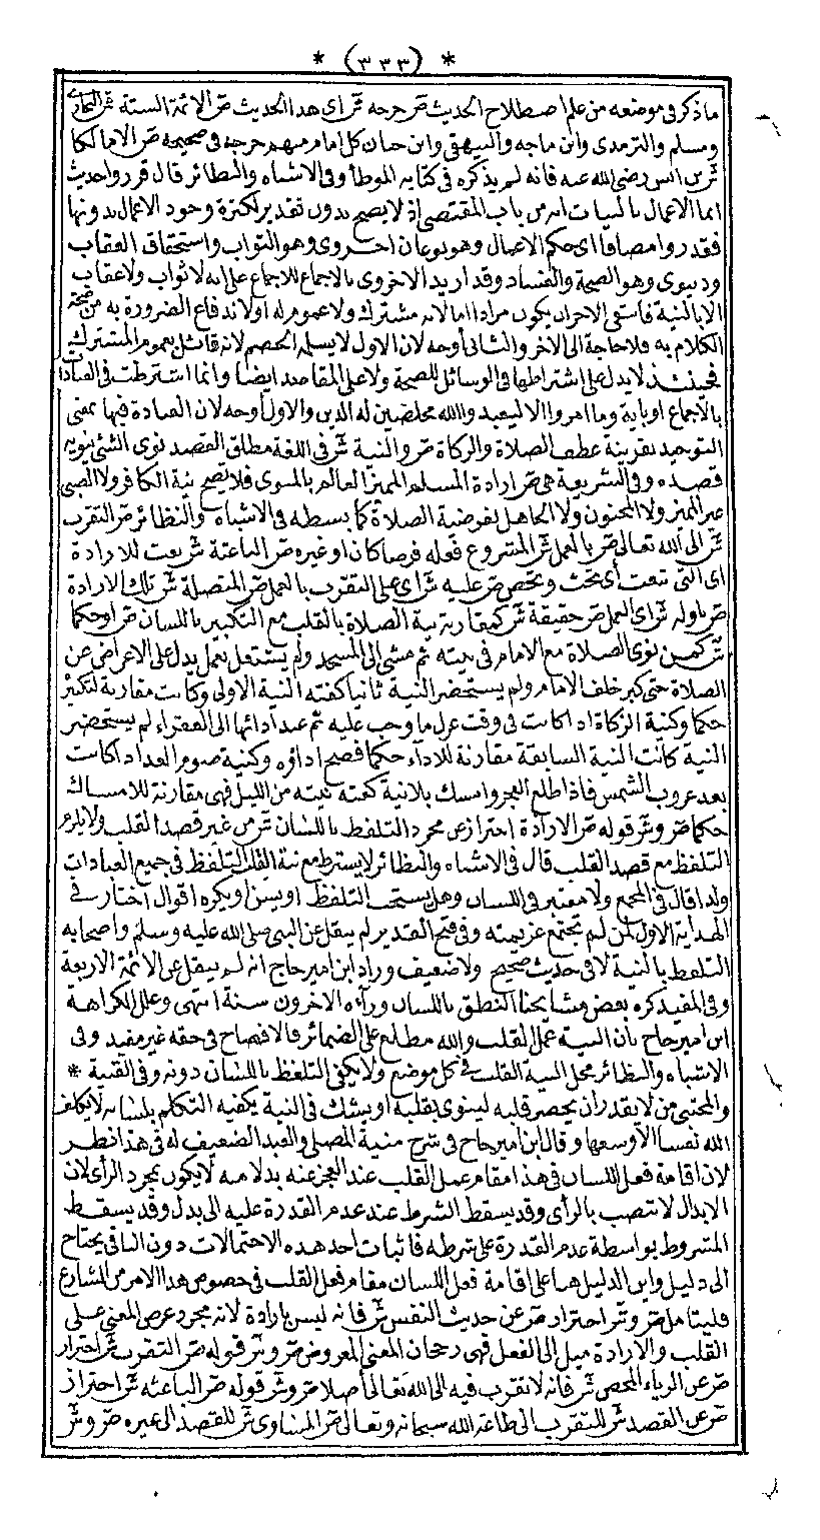 * (٣٣٣) *
ما ذكر في موضعه من علم اصطلاح الحديث ص خرجه ش اى هذا الحديث ص الائمة الستة ش البخارى
ومسلم والترمذى وابن ماجه والبيهقى وابن حبان كل امام منهم خرجه فى صحيحه ص الا مالكا
ش بن انس رضى الله عنه فانه لم يذكره فى كتابه الموطأ وفى الاشباه والنظائر قال قرروا حديث
انما الاعمال بالنيات انه من باب المقتضى اذ لا يصح بدون تقدير لكثرة وجود الاعمال بدونها
فقدروا مضافا اى حكم الاعمال وهو نوعان اخروى وهو الثواب واستحقاق العقاب
ودنيوى وهو الصحة والفساد وقد اريد الاخروى بالاجماع للاجماع على انه لا ثواب ولا عقاب
الا بالنية فانتفى الاخر ان يكون مرادا اما لانه مشترك ولا عموم له او لاندفاع الضرورة به من صحة
الكلام به فلا حاجة الى الاخر والثانى أوجه لان الاول لا يسلمه الخصم لانه قائل بعموم المشترك
فحينئذ لا يدل على اشتراطها فى الوسائل للصحة ولا على المقاصد ايضا وانما اشترطت فى العبادات
بالاجماع او باية وما امروا الا ليعبدوا الله مخلصين له الدين والاول أوجه لان العبادة فيها بمعنى
التوحيد بقرينة عطف الصلاة والزكاة ص والنية ش فى اللغة مطلق القصد نوى الشئ ينويه
قصده وفى الشريعة هى ص ارادة المسلم المميز العالم بالمنوى فلا يصح نية الكافر ولا الصبى
غير المميز ولا المجنون ولا الجاهل بفرضية الصلاة كما بسطه فى الاشباه والنظائر ص التقرب
ش الى الله تعالى ص بالعمل ش المشروع فعله فرضا كان او غيره ص الباعثة ش نعت للارادة
اى التى تبعث أى تحث وتحض ص عليه ش اى على التقرب بالعمل ص المتصلة ش تلك الارادة
ص باوله ش اى العمل ص حقيقة ش كمقارنة نية الصلاة بالقلب مع التكبير باللسان ص او حكما
ش كمن نوى الصلاة مع الامام فى بيته ثم مشى الى المسجد ولم يشتغل بعمل يدل على الاعراض عن
الصلاة حتى كبر خلف الامام ولم يستحضر النية ثانيا كفته النية الاولى وكانت مقارنة لتكبيره
حكما وكنية الزكاة اذا كانت فى وقت عزل ما وجب عليه ثم عند ادائها الى الفقراء لم يستحضر
النية كانت النية السابقة مقارنة للاداء حكما فصح اداؤه وكنية صوم الغد اذا كانت
بعد غروب الشمس فاذا طلع الفجر وامسك بلا نية كفته نيته من الليل فهى مقارنة للامساك
حكما ص و ش قوله ص الارادة احتراز ص عن مجرد التلفظ باللسان ش من غير قصد القلب ولا يلزم
التلفظ مع قصد القلب قال فى الاشباه والنظائر لا يشترط مع نية القلب التلفظ فى جميع العبادات
ولذا قال فى المجمع ولا معتبر فى اللسان وهل يستحب التلفظ او يسن او يكره اقوال اختار فى
الهداية الاول لمن لم تجتمع عزيمته وفى فتح القدير لم ينقل عن النبى صلى الله عليه وسلم واصحابه
التلفظ بالنية لا فى حديث صحيح ولا ضعيف وزاد ابن امير حاج انه لم ينقل عن الائمة الاربعة
وفى المفيد كره بعض مشايخنا النطق باللسان ورآه الاخرون سنة انتهى وعلل الكراهة
ابن امير حاج بأن النية عمل القلب والله مطلع على الضمائر فالافصاح فى حقه غير مفيد وفى
الاشباه والنظائر محل النية القلب فى كل موضع ولا يكفى التلفظ باللسان دونه وفى القنية *
والمجتبى من لا يقدر ان يحضر قلبه لينوى بقلبه او يشك فى النية يكفيه التكلم بلسانه لا يكلف
الله نفسا الا وسعها وقال ابن امير حاج فى شرح منية المصلى والعبد الضعيف له فى هذا نظر
لان اقامة فعل اللسان فى هذا مقام عمل القلب عند العجز عنه بدلا منه لا يكون بمجرد الرأى لان
الابدال لا تنتصب بالرأى وقد يسقط الشرط عند عدم القدرة عليه الى بدل وقد يسقط
المشروط بواسطة عدم القدرة على شرطه فاثبات احد هذه الاحتمالات دون الباقى يحتاج
الى دليل واين الدليل هنا على اقامة فعل اللسان مقام فعل القلب فى خصوص هذا الامر من الشارع
فليتأمل ص و ش احتراز ص عن حديث النفس ش فانه ليس بارادة لانه مجرد عرض المعنى على
القلب والارادة ميل الى الفعل فهى رجحان المعنى المعروض ص و ش قوله ص التقرب ش احتراز
ص عن الرياء المحض ش فانه لا تقرب فيه الى الله تعالى أصلا ص و ش قوله ص الباعثة ش احتراز
ص عن القصد ش للتقرب الى طاعة الله سبحانه وتعالى ص المساوى ش للقصد الى غيره ص و ش